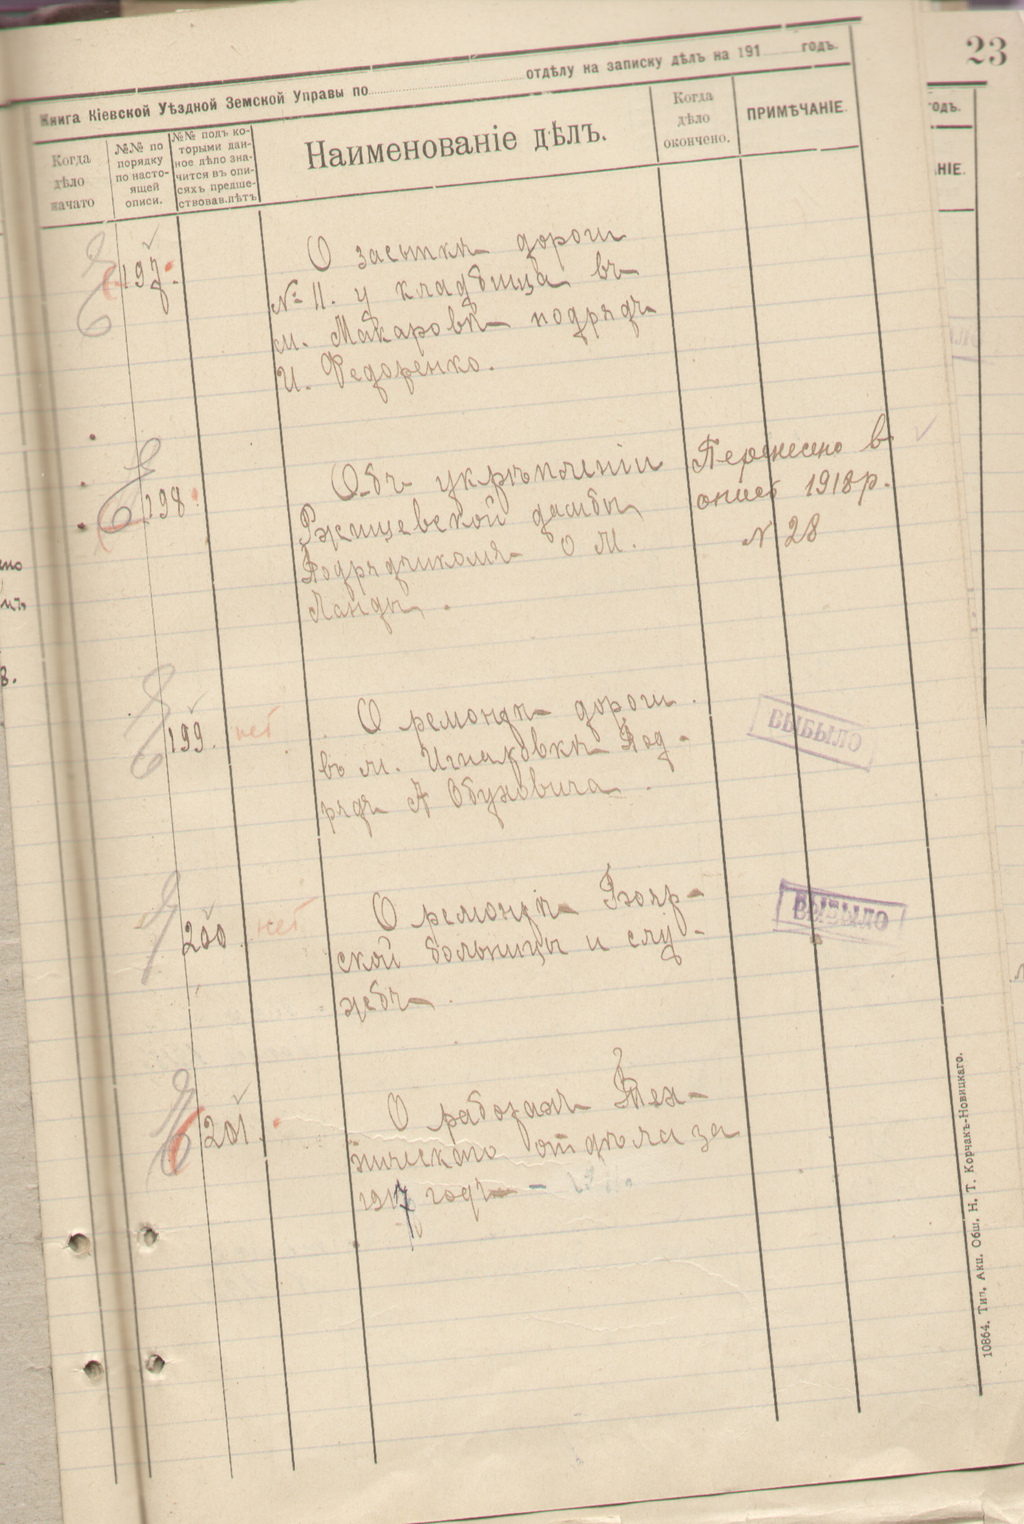 23
Книга Кіевской Уѣздной Земской Управы по отдѣлу на записку дѣлъ на 191 годъ.
Когда дѣло начато
№№ по порядку по насто- ящей описи.
№№ подъ ко- торыми дан- ное дѣло зна- чится въ опи- сяхъ предше- ствовав.лѣтъ
Наименованіе дѣлъ.
Когда дѣло окончено.
ПРИМѢЧАНІЕ.
одъ.
НІЕ.
197.
О засыпкѣ дороги
№ 11. у кладбища въ
м. Макаровѣ подрядч
И. Федоренко.
198.
Объ укрѣпленіи
Ржищевской дамбы
Подрядчикомъ О М.
Ланды.
Перенесено в
опись 1918 р.
№ 28
199.
нет
О ремонтѣ дороги
въ м. Игнатовкѣ Под-
рядч А Обуховича.
ВЫБЫЛО
200.
нет
О ремонтѣ Бояр-
ской больницы и слу-
жебъ
ВЫБЫЛО
201.
О работахъ Тех-
ническаго отдѣла за
1917 годъ -
10864. Тип. Акц. Общ. Н. Т. Корчакъ-Новицкаго.